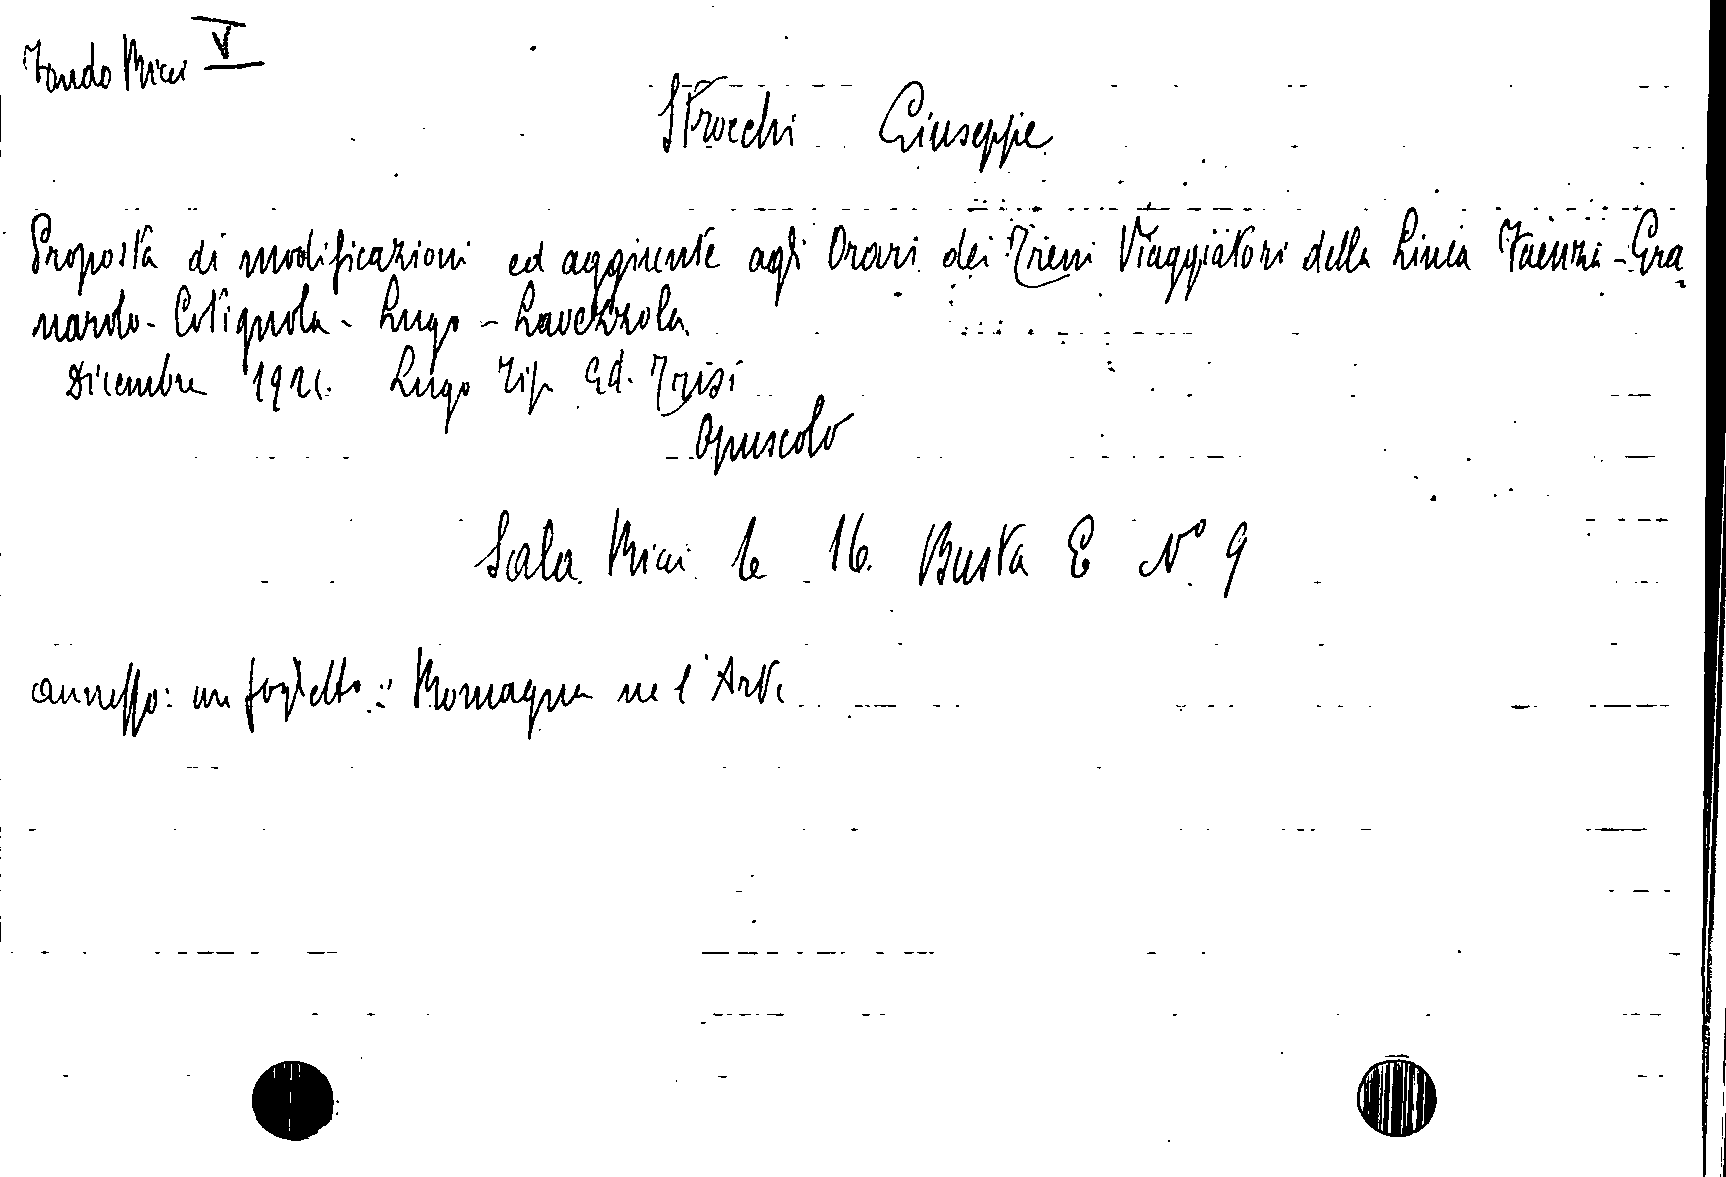 Fondo Ricci V
Strocchi Giuseppe
Proposta di modificazioni ed aggiunte agli Orari dei Treni Viaggiatori della Linea Faenza - Gra
narolo - Cotignola - Lugo - Lavezzola
Dicembre Lugo Tip. Ed. Trisi
Opuscolo
Sala Ricci 16. Busta E N° 9
annesso: un foglietto: Romagna ne l'Arte